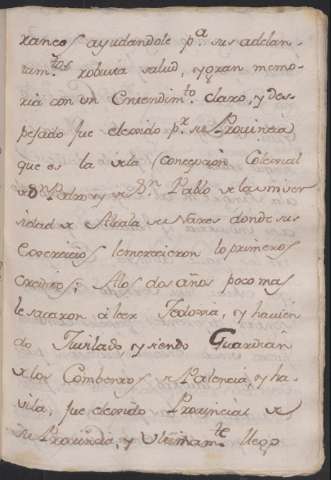 raneos ayudandole p.ª sus adelan-
tam.tos robusta salud, y gran memo-
ria con un Entendim.to claro, y des-
pejado fue elexido p.r su Provincia
que es la de la Concepcion Colegial
de Sn Pedro, y Sn Pablo de la univer
sidad de Alcala de Nares donde sus
Exercicios le merecieron lo primeros
creditos; Alos dos años poco mas
le sacaron à leer Teologia, y havien
do Jubilado y siendo Guardian
de los Combentos de Palencia, y ha-
vila, fue elexido Provincial de
su Provincia, y Ultimam.te llegò